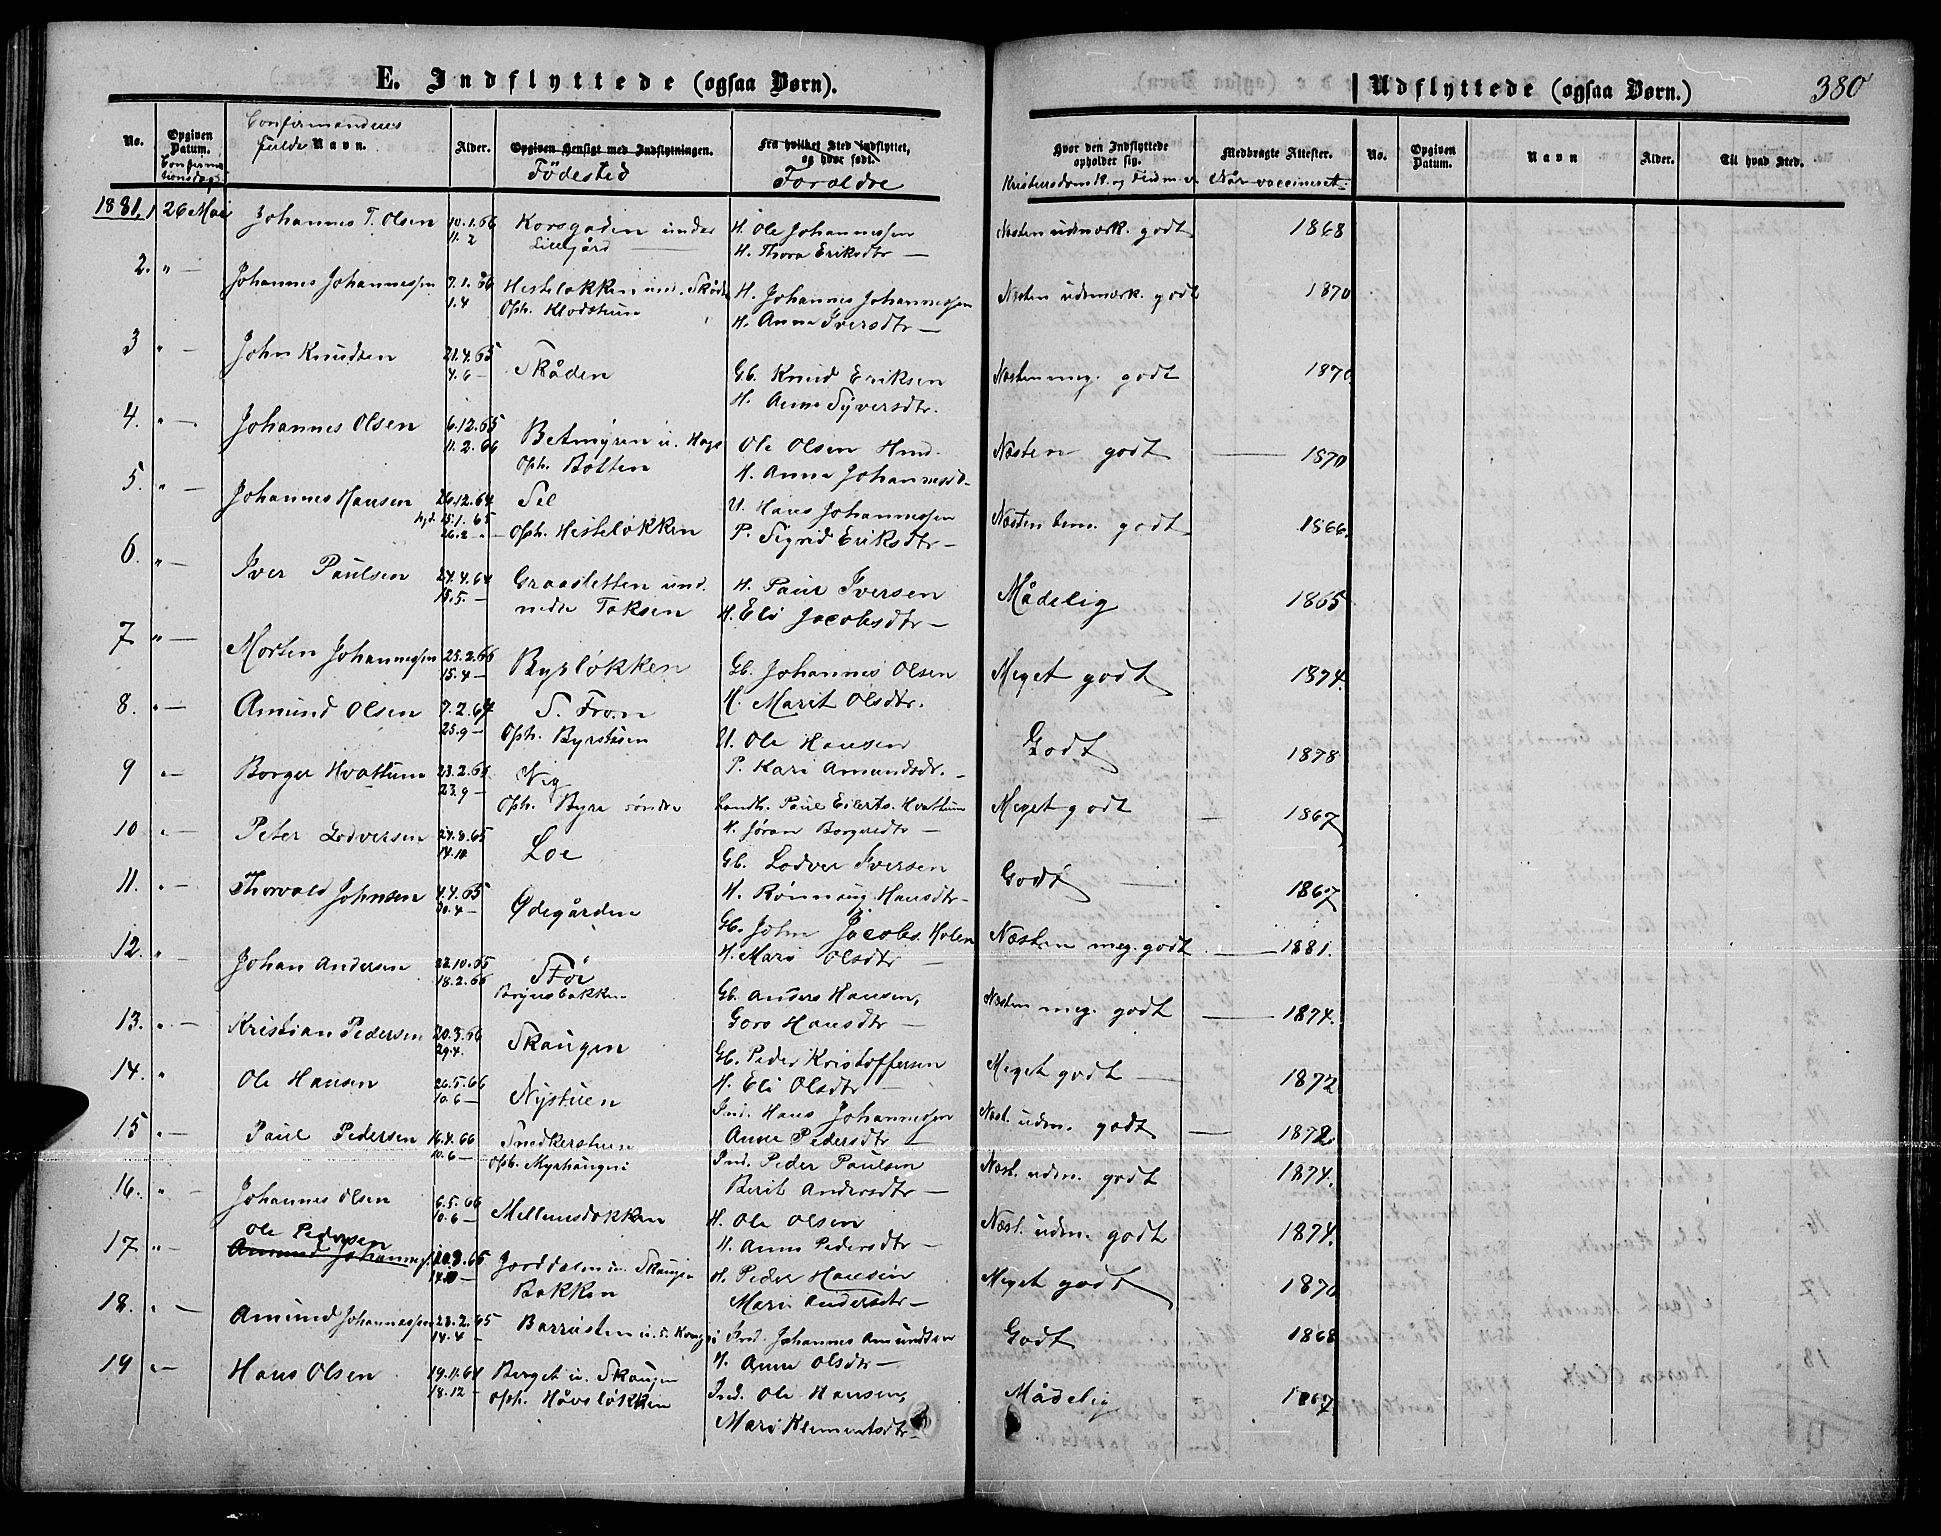 E. Indflyttede (ogsaa Børn).
Udflyttede (ogsaa Børn.)
380
No.
Opgiven Datum.
Confirmationsdag
Confirmandernes
fulde Navn.
Alder.
Opgiven Hensigt med Indflytningen.
Födested
Fra hvilket Sted indflyttet, og hvor født.
Forældre
Hvor den Indflyttede opholder sig.
Kristendomsk. og Flid m. v.
Medbragte Attester.
Når vaccineret.
No.
Opgiven Datum.
Navn
Alder.
Til hvad Sted.
1881. 1 26 Mai Johannes T. Olsen 10.1.66 Korsgaden under H. Ole Johannessen Næsten udmærk. godt 1868
11.2 Lillegård H. Thora Eriksdtr —
2. " — Johannes Johannessen 7.1.66 Hesteløkken und. Skåde H. Johannes Johannessen Næsten udmærk. godt 1870
1.4 Oph. Klodstuen H. Anne Iversdtr —
3 " — John Knudsen 21.4.65 Skåden Gb. Knud Eriksen Næsten meg. godt 1870.
4.6 — H. Anne Syversdtr.
4. " — Johannes Olsen 6.12.65 Betmyren u. Hage Ole Olsen Hmd. Næsten godt — 1870
11.2.66 Oph. Botten H. Anne Johannesd.
5. " — Johannes Hansen 26.12.64 Sel U. Hans Johannessen Næsten tem. godt 1866.
hjd. 15.1.65 Oph. Hesteløkken P. Sigrid Eriksdtr —
26.2 " —
6. " — Iver Paulsen 24.4.64 Graasletten und. H. Paul Iversen Mådelig 1865
15.5. — nedre Toksen H. Eli Jacobsdtr —
7 " — Morten Johannessen 25.2.66 Byrløkken Gb. Johannes Olsen Meget godt 1874.
15.4 — H. Marit Olsdtr.
8. " — Amund Olsen 7.2.64 S. Fron U. Ole Hansen Godt 1878
25.9 — Oph. Byrstuen P. Kari Amundsdr. —
9 " — Borger Hvattum 23.2.65 Vig Landh. Paul Eilerts. Hvattum Meget godt — 1867
23.9 — Oph. Byre söndre H. Jøran Borgersdtr —
10 " — Peter Lodversen 27.8.65 Loe Gb. Lodver Iversen Godt — 1867
14.10 H. Rønnaug Hansdtr —
11. " — Thorvald Johnsen 4.4.65 Ødegården Gb. John Jacobs. Holen Næsten meg. godt — 1881.
30.4 — H. Mari Olsdtr —
12. " — Johan Andersen 22.10.65 Stöe Gb. Anders Hansen, Næsten meg. godt — 1874.
18.2.66 Brynsbakken Goro Hansdtr —
13. " — Kristian Pedersen 20.3.66 Skaugen Gb. Peder Kristoffersen Meget godt — 1872
29.4. H. Eli Olsdtr —
14. " Ole Hansen 26.5.66 Nystuen Ind. Hans Johannessen Næst. udm. godt — 1872.
10.6 — Anne Pedersdtr —
15 " — Paul Pedersen 16.4.66 Snedkerstuen Ind. Peder Paulsen Næst. udm. godt 1874.
10.6 — oph. Myrhaugen Berit Andersdtr —
16. " — Johannes Olsen 6.5.66 Mellemsløkken H. Ole Olsen Næst. udm. godt 1874.
10.6 — H. Anne Pedersdtr —
17. " — Ole Pedersen
Amund Johanness. 20.8.65 Jorddalen u. Skaugen H. Peder Hansen Meget godt 1870
Bakken Mari Andersdtr —
18. " — Amund Johannessen 23.2.65 Barrusten u. Ind. Johannes Amundsen Godt 1868
14.4 — H. Anne Olsdtr —
19 " — Hans Olsen 19.11.64 Berget u. Skaugen Ind. Ole Hansen, Mådelig 1867.
18.12 — oph. Håvsløkken Mari Klementsdtr —